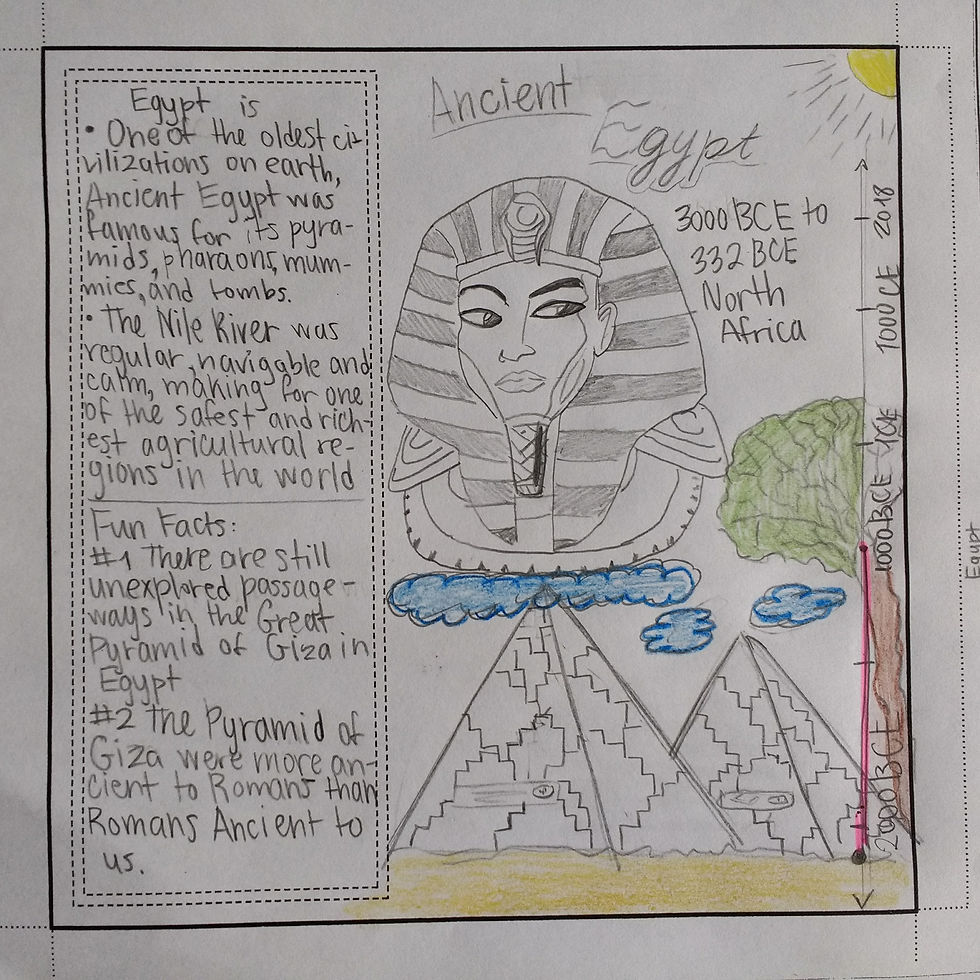 Egypt is
• One of the oldest ci-
vilizations on earth,
Ancient Egypt was
famous for its pyra-
mids, pharaons, mum-
mies, and tombs.
• The Nile River was
regular, navigable and
calm, making for one
of the safest and rich-
est agricultural re-
gions in the world
Fun Facts:
#1 There are still
unexplored passage-
ways in the Great
Pyramid of Giza in
Egypt
#2 The Pyramid of
Giza were more an-
cient to Romans than
Romans Ancient to
us.
Ancient
Egypt
3000 BCE to
332 BCE
North
Africa
2018
1000 CE
1 CE
1000 BCE
2000 BCE
Egypt